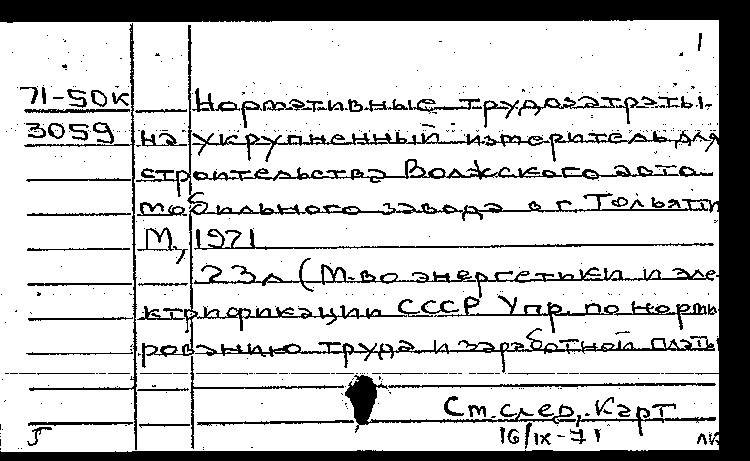 1
71-50к Нормативные трудозатраты
3059 на укрупненный измеритель для
строительства Волжского авто-
мобильного завода в г. Тольятти
М, 1971
23л (М-во энергетики и эле-
ктрификации СССР Упр. по норми
рованию труда и заработной платы
См. след. карт
16/IX-71